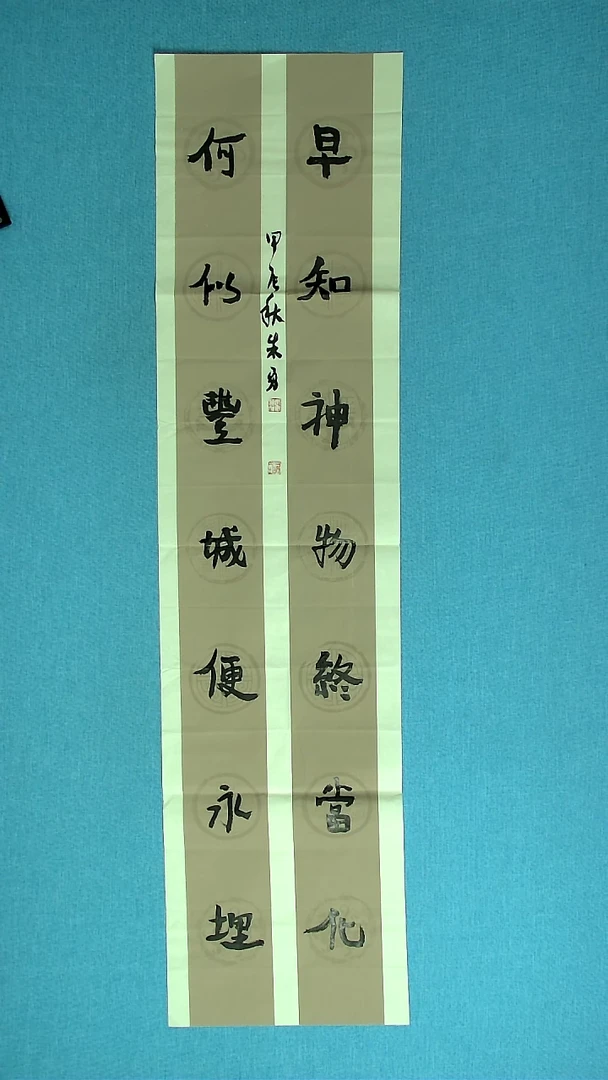 早知神物終當化
何似豐城便永埋
甲辰秋朱勇